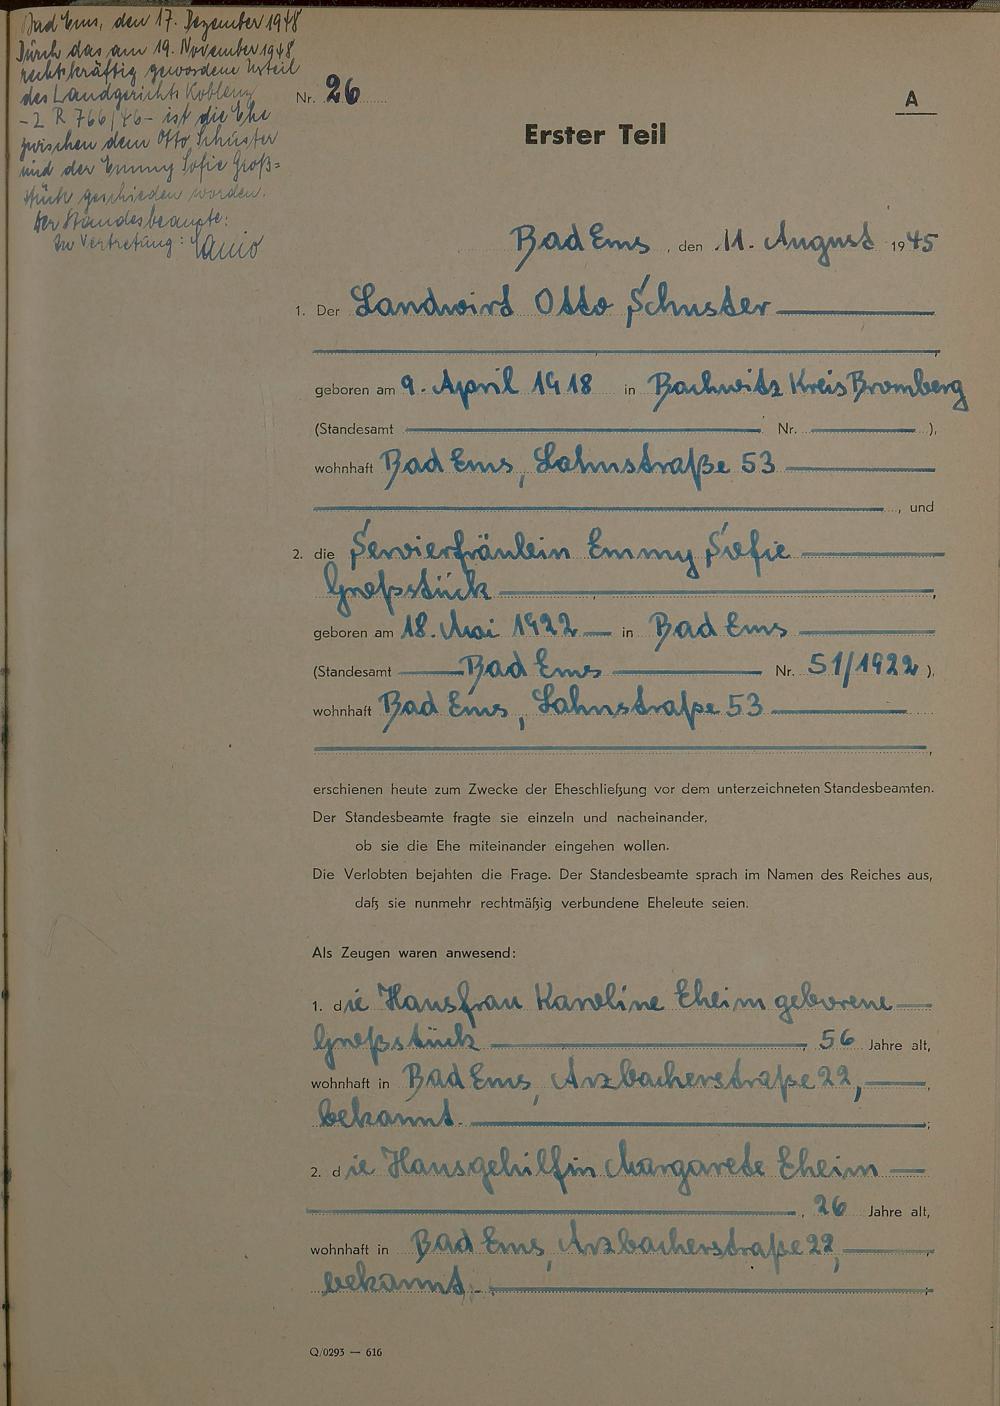 Bad Ems, den 17. Dezember 1948
Durch das am 19. November 1948
rechtskräftig gewordene Urteil
des Landgerichts Koblenz
- 2 R 766/46 - ist die Ehe
zwischen dem Otto Schuster
und der Emmy Sofie Groß=
stück geschieden worden.
Der Standesbeamte:
In Vertretung:
Nr. 26
A
Erster Teil
Bad Ems, den 11. August 1945
1. Der Landwirt Otto Schuster
geboren am 9. April 1918 in Bachwitz Kreis Bromberg
(Standesamt Nr. ),
wohnhaft Bad Ems, Lahnstraße 53
, und
2. die Servierfräulein Emmy Sofie
Großstück,
geboren am 18. Mai 1922 in Bad Ems
(Standesamt Bad Ems Nr. 51/1922),
wohnhaft Bad Ems, Lahnstraße 53
,
erschienen heute zum Zwecke der Eheschließung vor dem unterzeichneten Standesbeamten.
Der Standesbeamte fragte sie einzeln und nacheinander,
ob sie die Ehe miteinander eingehen wollen.
Die Verlobten bejahten die Frage. Der Standesbeamte sprach im Namen des Reiches aus,
daß sie nunmehr rechtmäßig verbundene Eheleute seien.
Als Zeugen waren anwesend:
1. die Hausfrau Karoline Eheim geborene
Großstück, 56 Jahre alt,
wohnhaft in Bad Ems, Arzbacherstraße 22,
bekannt.;
2. die Hausgehilfin Margarete Eheim
, 26 Jahre alt,
wohnhaft in Bad Ems, Arzbacherstraße 22,
bekannt.
Q/0293 — 616